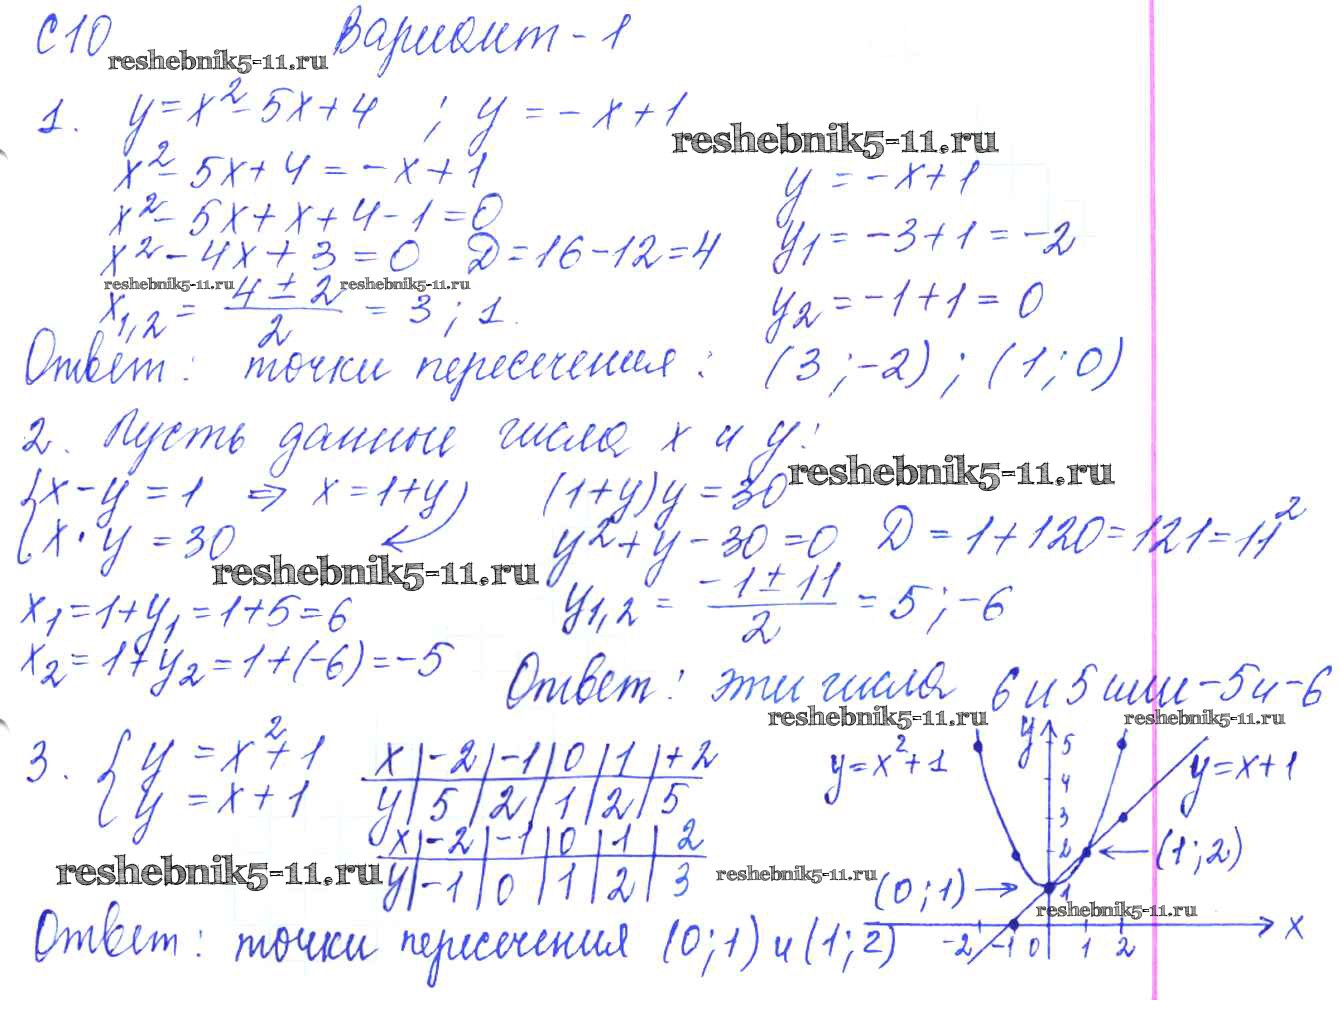 С10 Вариант - 1
reshebnik5-11.ru
1. y = x² - 5x + 4 ; y = -x + 1
reshebnik5-11.ru
x² - 5x + 4 = -x + 1
y = -x + 1
x² - 5x + x + 4 - 1 = 0
x² - 4x + 3 = 0 D = 16 - 12 = 4
y₁ = -3 + 1 = -2
reshebnik5-11.ru reshebnik5-11.ru
x₁,₂ = (4 ± 2)/2 = 3 ; 1.
y₂ = -1 + 1 = 0
Ответ: точки пересечения: (3 ; -2) ; (1 ; 0)
2. Пусть данные числа x и y:
reshebnik5-11.ru
{x - y = 1 ⇒ x = 1 + y) (1 + y)y = 30
{x · y = 30 y² + y - 30 = 0 D = 1 + 120 = 121 = 11²
reshebnik5-11.ru
x₁ = 1 + y₁ = 1 + 5 = 6 y₁,₂ = (-1 ± 11)/2 = 5 ; -6
x₂ = 1 + y₂ = 1 + (-6) = -5
Ответ: эти числа 6 и 5 или -5 и -6
reshebnik5-11.ru reshebnik5-11.ru
3. {y = x² + 1
{y = x + 1
x | -2 | -1 | 0 | 1 | +2
y | 5 | 2 | 1 | 2 | 5
x | -2 | -1 | 0 | 1 | 2
y | -1 | 0 | 1 | 2 | 3
reshebnik5-11.ru reshebnik5-11.ru
y = x² + 1
y
y = x + 1
5
4
3
2
1
(1 ; 2)
(0 ; 1)
reshebnik5-11.ru
-2 -1 0 1 2 x
Ответ: точки пересечения (0 ; 1) и (1 ; 2)